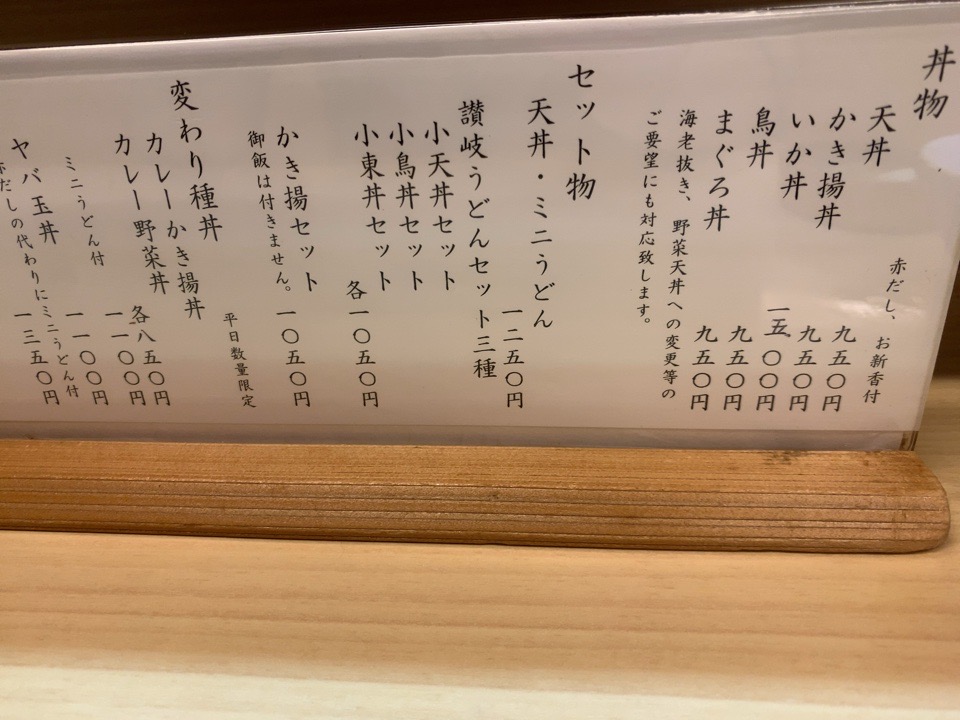 丼物
赤だし、お新香付
天丼 九五〇円
かき揚丼 九五〇円
いか丼 一五〇〇円
鳥丼 九五〇円
まぐろ丼 九五〇円
海老抜き、野菜天丼への変更等の
ご要望にも対応致します。
セット物
天丼・ミニうどん 一二五〇円
讃岐うどんセット三種
小天丼セット
小鳥丼セット
小東丼セット
各一〇五〇円
かき揚セット 一〇五〇円
御飯は付きません。
平日数量限定
変わり種丼
カレーかき揚丼 各八五〇円
カレー野菜丼 一一〇〇円
ミニうどん付 一一〇〇円
ヤバ玉丼 一三五〇円
赤だしの代わりにミニうどん付